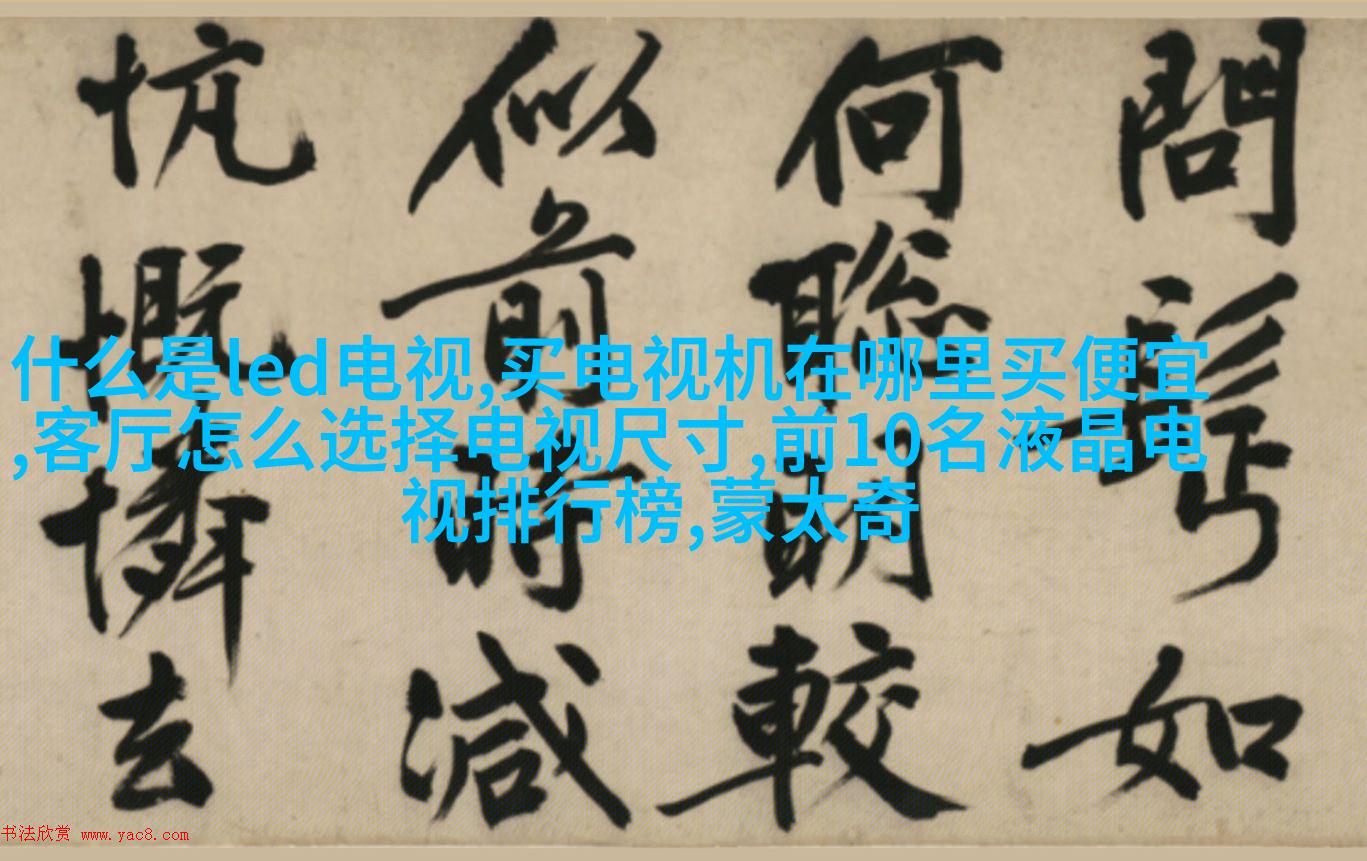 問如
何聰明較
似前時減
忼慨憐去
什么是led电视,买电视机在哪里买便宜
,客厅怎么选择电视尺寸,前10名液晶电
视排行榜,蒙太奇
书法欣赏 www.yac8.com